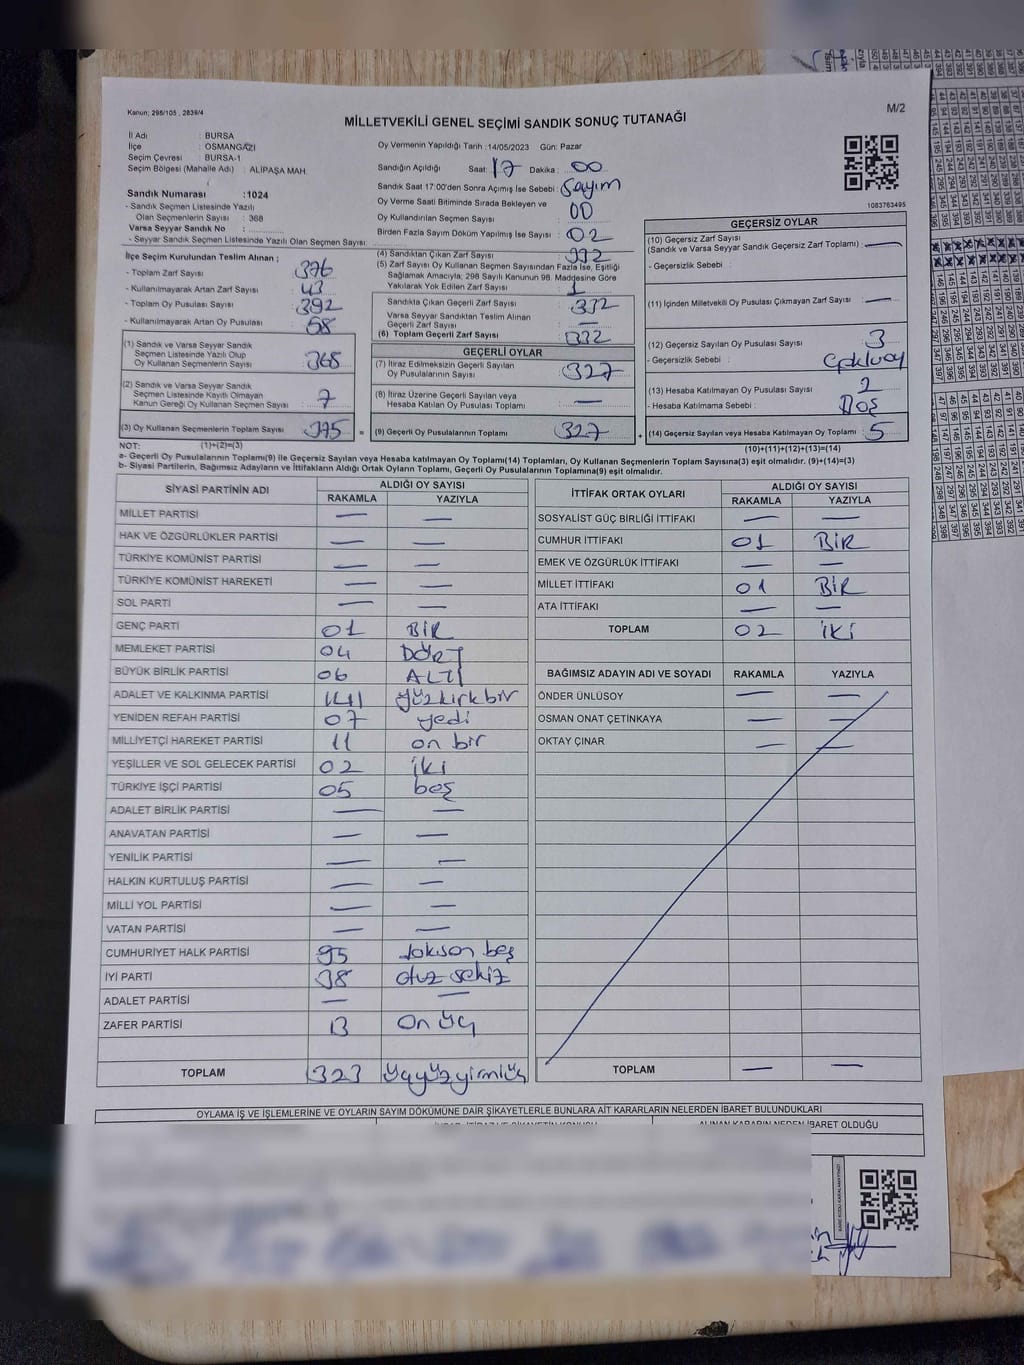 Kanun; 298/105 , 2839/4
M/2
MİLLETVEKİLİ GENEL SEÇİMİ SANDIK SONUÇ TUTANAĞI
İl Adı : BURSA
İlçe : OSMANGAZİ
Seçim Çevresi : BURSA-1
Seçim Bölgesi (Mahalle Adı) : ALİPAŞA MAH.
Sandık Numarası :1024
- Sandık Seçmen Listesinde Yazılı
Olan Seçmenlerin Sayısı : 368
Varsa Seyyar Sandık No :
- Seyyar Sandık Seçmen Listesinde Yazılı Olan Seçmen Sayısı:
Oy Vermenin Yapıldığı Tarih :14/05/2023 Gün: Pazar
Sandığın Açıldığı Saat: 17 Dakika : 00
Sandık Saat 17:00'den Sonra Açımış İse Sebebi : Sayım
Oy Verme Saati Bitiminde Sırada Bekleyen ve
Oy Kullandırılan Seçmen Sayısı 00
Birden Fazla Sayım Döküm Yapılmış İse Sayısı : 02
1083763495
İlçe Seçim Kurulundan Teslim Alınan ;
- Toplam Zarf Sayısı : 376
- Kullanılmayarak Artan Zarf Sayısı : 43
- Toplam Oy Pusulası Sayısı : 392
- Kullanılmayarak Artan Oy Pusulası : 58
(1) Sandık ve Varsa Seyyar Sandık
Seçmen Listesinde Yazılı Olup
Oy Kullanan Seçmenlerin Sayısı : 368
(2) Sandık ve Varsa Seyyar Sandık
Seçmen Listesinde Kayıtlı Olmayan
Kanun Gereği Oy Kullanan Seçmen Sayısı : 7
(3) Oy Kullanan Seçmenlerin Toplam Sayısı : 375
(4) Sandıktan Çıkan Zarf Sayısı :
(5) Zarf Sayısı Oy Kullanan Seçmen Sayısından Fazla İse, Eşitliği
Sağlamak Amacıyla, 298 Sayılı Kanunun 98. Maddesine Göre
Yakılarak Yok Edilen Zarf Sayısı : 1
Sandıkta Çıkan Geçerli Zarf Sayısı : 332
Varsa Seyyar Sandıktan Teslim Alınan
Geçerli Zarf Sayısı : —
(6) Toplam Geçerli Zarf Sayısı : 332
GEÇERLİ OYLAR
(7) İtiraz Edilmeksizin Geçerli Sayılan
Oy Pusulalarının Sayısı : 327
(8) İtiraz Üzerine Geçerli Sayılan veya
Hesaba Katılan Oy Pusulaları Toplamı : —
= (9) Geçerli Oy Pusulalarının Toplamı : 327
GEÇERSİZ OYLAR
(10) Geçersiz Zarf Sayısı
(Sandık ve Varsa Seyyar Sandık Geçersiz Zarf Toplamı) : —
- Geçersizlik Sebebi :
(11) İçinden Milletvekili Oy Pusulası Çıkmayan Zarf Sayısı : —
(12) Geçersiz Sayılan Oy Pusulası Sayısı : 3
- Geçersizlik Sebebi :
(13) Hesaba Katılmayan Oy Pusulası Sayısı : 2
- Hesaba Katılmama Sebebi : Boş
+ (14) Geçersiz Sayılan veya Hesaba Katılmayan Oy Toplamı : 5
NOT: (1)+(2)=(3) (10)+(11)+(12)+(13)=(14)
a- Geçerli Oy Pusulalarının Toplamı(9) ile Geçersiz Sayılan veya Hesaba Katılmayan Oy Toplamı(14) Toplamları, Oy Kullanan Seçmenlerin Toplam Sayısına(3) eşit olmalıdır. (9)+(14)=(3)
b- Siyasi Partilerin, Bağımsız Adayların ve İttifakların Aldığı Ortak Oyların Toplamı, Geçerli Oy Pusulalarının Toplamına(9) eşit olmalıdır.
SİYASİ PARTİNİN ADI ALDIĞI OY SAYISI
RAKAMLA YAZIYLA
MİLLET PARTİSİ — —
HAK VE ÖZGÜRLÜKLER PARTİSİ — —
TÜRKİYE KOMÜNİST PARTİSİ — —
TÜRKİYE KOMÜNİST HAREKETİ — —
SOL PARTİ — —
GENÇ PARTİ 01 BİR
MEMLEKET PARTİSİ 04 DÖRT
BÜYÜK BİRLİK PARTİSİ 06 ALTI
ADALET VE KALKINMA PARTİSİ 141 yüzkırkbir
YENİDEN REFAH PARTİSİ 07 yedi
MİLLİYETÇİ HAREKET PARTİSİ 11 on bir
YEŞİLLER VE SOL GELECEK PARTİSİ 02 iki
TÜRKİYE İŞÇİ PARTİSİ 05 beş
ADALET BİRLİK PARTİSİ — —
ANAVATAN PARTİSİ — —
YENİLİK PARTİSİ — —
HALKIN KURTULUŞ PARTİSİ — —
MİLLİ YOL PARTİSİ — —
VATAN PARTİSİ — —
CUMHURİYET HALK PARTİSİ 95 doksan beş
İYİ PARTİ 38 otuz sekiz
ADALET PARTİSİ — —
ZAFER PARTİSİ 13 on üç
TOPLAM 323 üçyüzyirmiüç
İTTİFAK ORTAK OYLARI ALDIĞI OY SAYISI
RAKAMLA YAZIYLA
SOSYALİST GÜÇ BİRLİĞİ İTTİFAKI — —
CUMHUR İTTİFAKI 01 BİR
EMEK VE ÖZGÜRLÜK İTTİFAKI — —
MİLLET İTTİFAKI 01 BİR
ATA İTTİFAKI — —
TOPLAM 02 İKİ
BAĞIMSIZ ADAYIN ADI VE SOYADI RAKAMLA YAZIYLA
ÖNDER ÜNLÜSOY — —
OSMAN ONAT ÇETİNKAYA — —
OKTAY ÇINAR — —
TOPLAM — —
OYLAMA İŞ VE İŞLEMLERİNE VE OYLARIN SAYIM DÖKÜMÜNE DAİR ŞİKAYETLERLE BUNLARA AİT KARARLARIN NELERDEN İBARET BULUNDUKLARI
ALINAN KARARIN NEDEN İBARET OLDUĞU